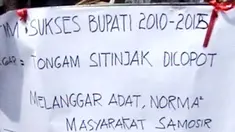 TIM SUKSES BUPATI 2010-2015
TONGAM SITINJAK DICOPOT
MELANGGAR ADAT, NORMA
MASYARAKAT SAMOSIR